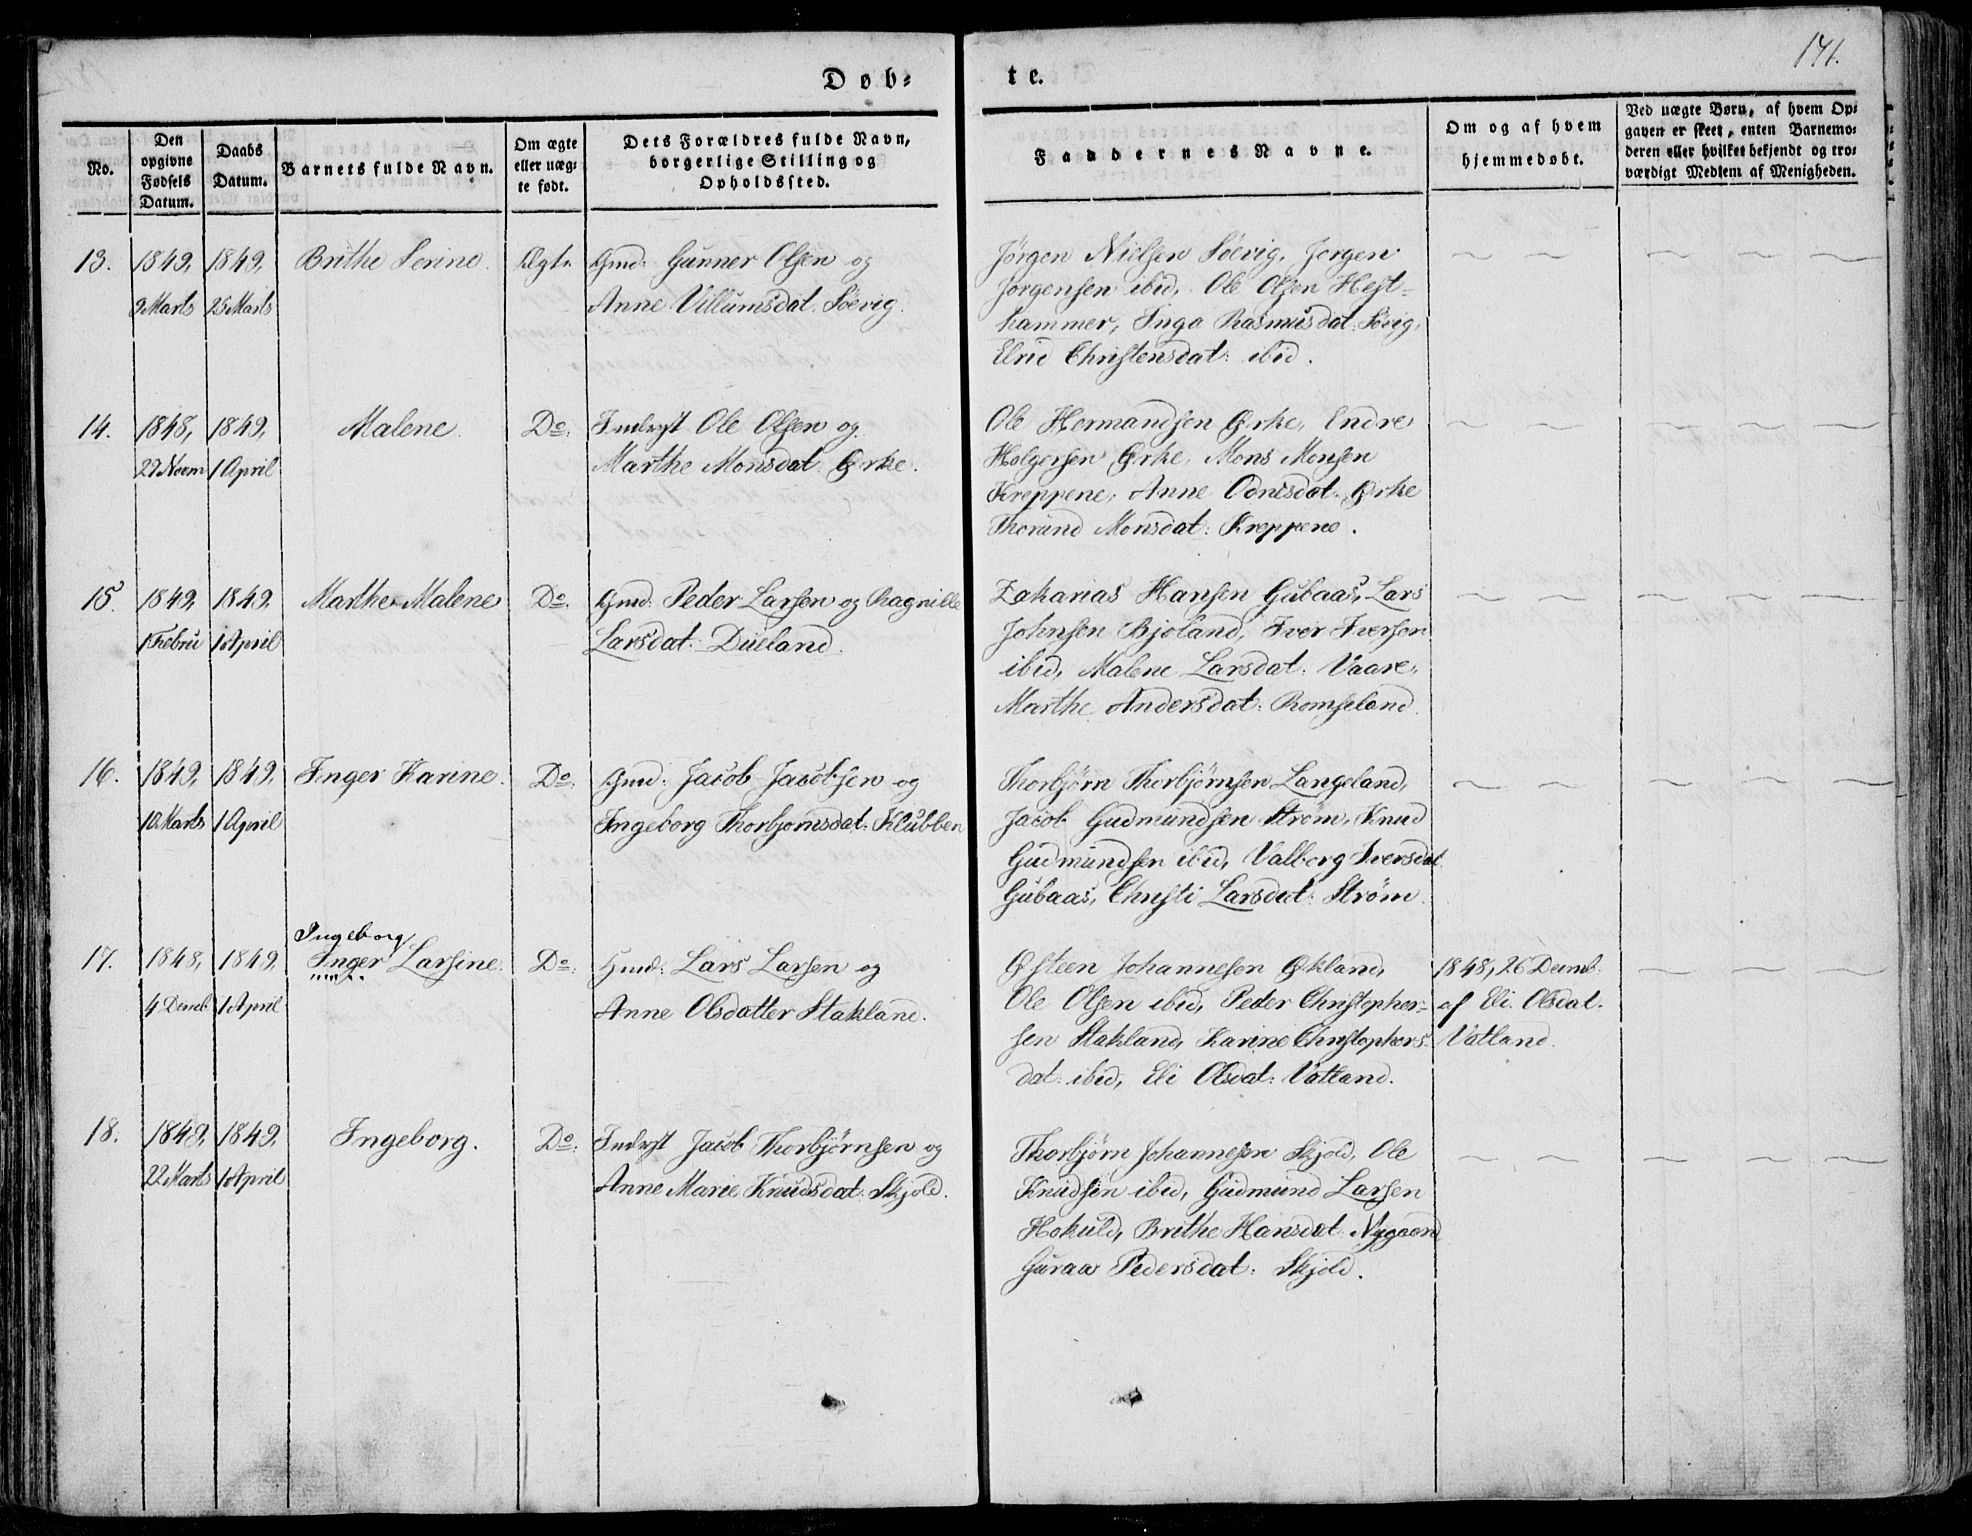 171.
Døb=
te.
No.
Den opgivne Fødsels Datum.
Daabs Datum.
Barnets fulde Navn.
Om ægte eller uægte født.
Dets Forældres fulde Navn, borgerlige Stilling og Opholdssted.
Faddernes Navne.
Om og af hvem hjemmedøbt.
Ved uægte Børn, af hvem Op=
gaven er skeet, enten Barnemo=
deren eller hvilket bekjendt og tro=
værdigt Medlem af Menigheden.
13. 1849, 1849, Brithe Serine. Ægte Gmd: Gunner Olsen og
9 Marts 25 Marts Anne Villumsdat: Söevig.
Jörgen Nielsen Söevig, Jorgen
Jorgensen ibid, Ole Olsen Hest=
hammer, Inga Rasmusdat: Sövig,
Elrid Christensdat: ibid.
14. 1848, 1849, Malene. Do: Indrst Ole Olsen og
27 Novm 1 April Marthe Monsdat: Ørke.
Ole Hermandsen Ørke, Endre
Holgersen Ørke, Mons Monsen
Kreppene, Anne Odnesdat: Ørke
Thorund Monsdat: Kreppene.
15. 1849, 1849, Marthe Malene Do: Gmd: Peder Larsen og Ragnille
1 Febru 1 April Larsdat: Dueland.
Zakarias Hansen Gubaas, Lars
Johnsen Bjoland, Iver Iversen
ibid, Malene Larsdat: Vaare,
Marthe Andersdat: Romseland.
16. 1849, 1849, Inger Karine. Do: Gmd: Jacob Jacobsen og
10 Marts 1 April Ingeborg Thorbjornsdat: Klubben
Thorbjørn Thorbjørnsen Langeland,
Jacob Gudmundsen Strøm, Knud
Gudmundsen ibid, Valborg Iversdat
Gubaas, Christi Larsdat: Strøm.
Ingeborg
17. 1848, 1849, Inger Larsine. Do: Hmd: Lars Larsen og
4 Decmb 1 April Anne Olsdatter Stakland.
Østeen Johannesen Økland,
Ole Olsen ibid, Peder Christopher=
sen Stakland, Karine Christophers=
dat: ibid, Eli Olsdat: Vatland.
1848, 26 Decmb.
af Eli Olsdat:
Vatland.
18. 1849, 1849, Ingeborg. Do: Indrst Jacob Thorbjørnsen og
22 Marts 1 April Anne Marie Knudsdat: Skjold.
Thorbjørn Johannesen Skjold, Ole
Knudsen ibid, Gudmund Larsen
Hokuld, Brithe Hansdat: Nygaard,
Guraa Pedersdat: Skjold.